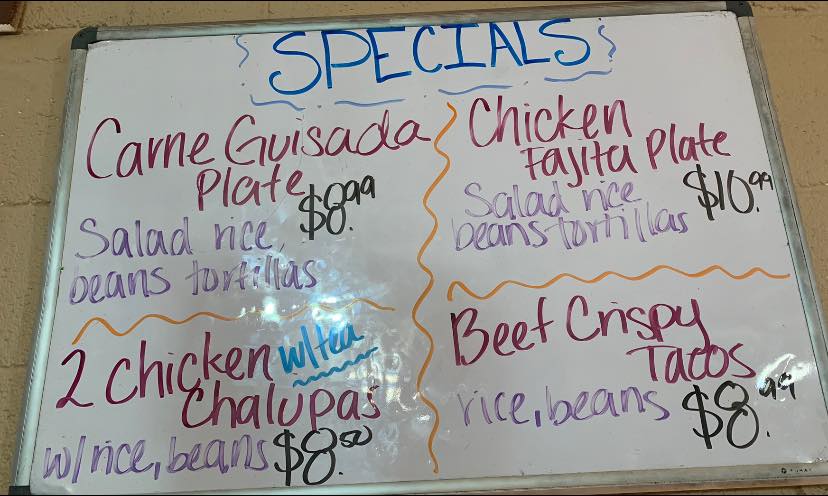 SPECIALS
Carne Guisada
Plate $8.99
Salad rice,
beans tortillas
Chicken
Fajita Plate
Salad rice $10.99
beans tortillas
2 Chicken w/tea
Chalupas
w/rice, beans $8.50
Beef Crispy
Tacos
rice, beans $8.99